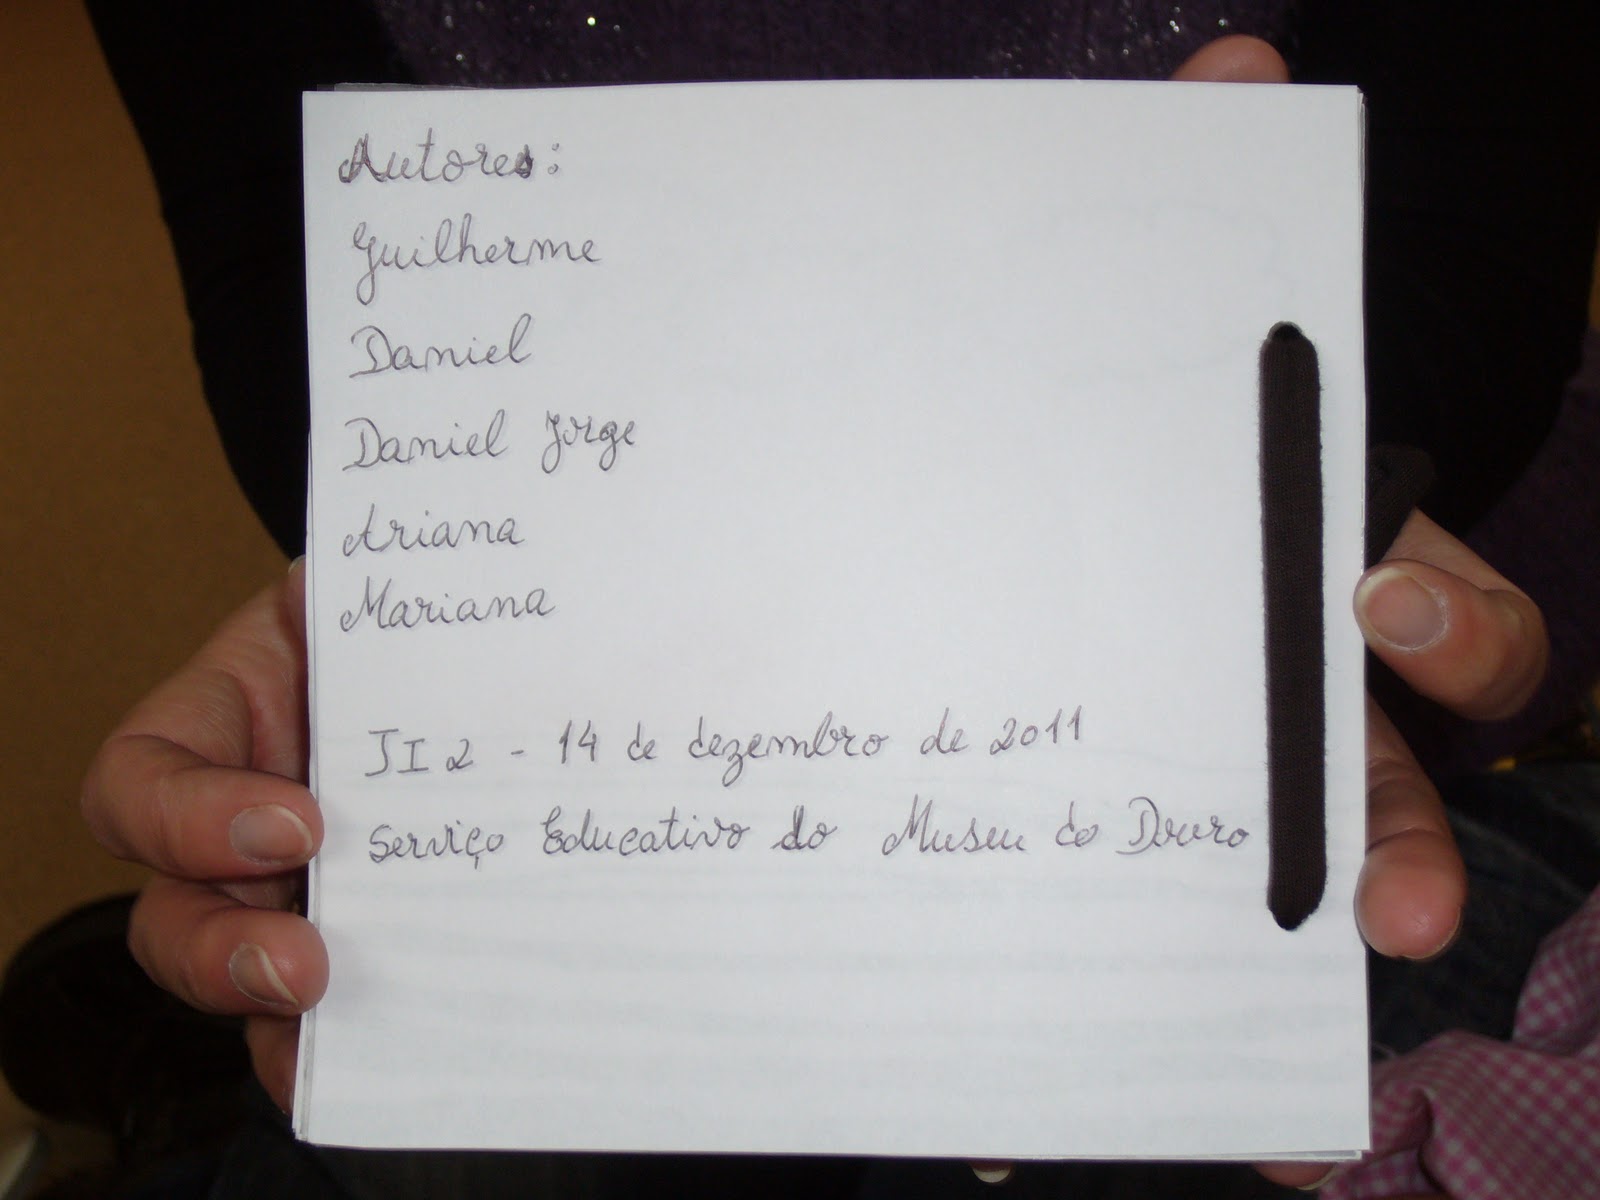 Autores:
Guilherme
Daniel
Daniel Jorge
Ariana
Mariana
JI 2 - 14 de dezembro de 2011
Serviço Educativo do Museu do Douro